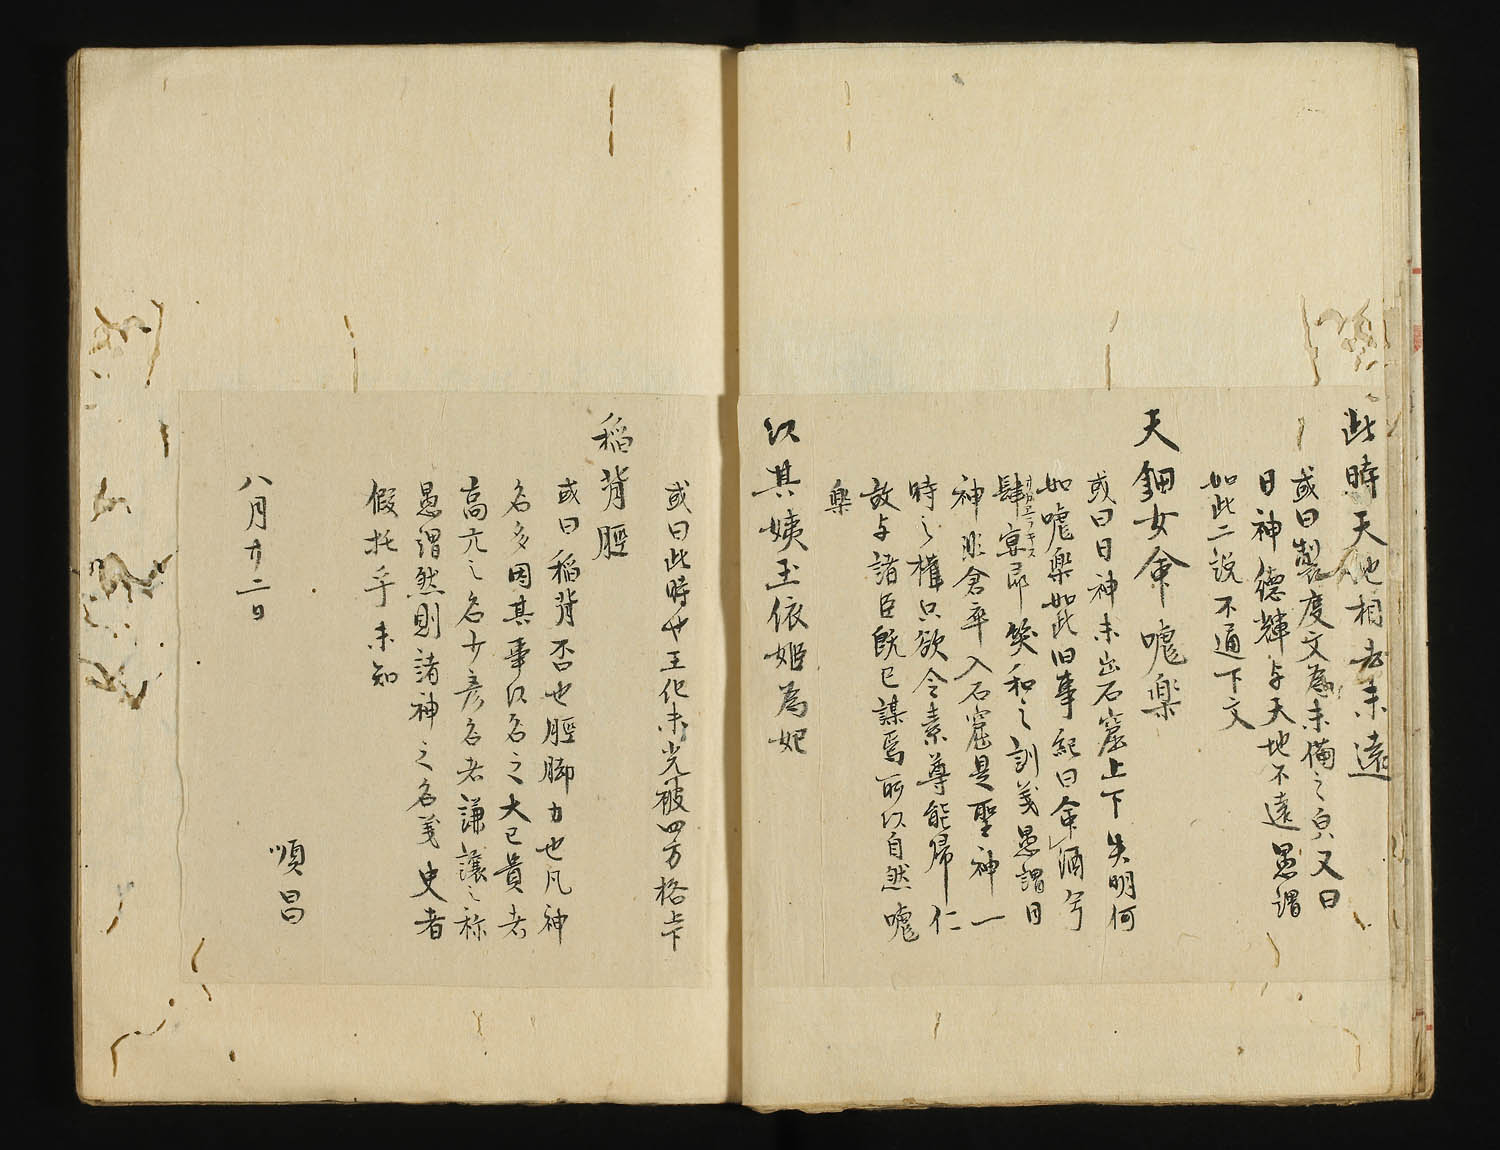 此時天地相去未遠
或曰製度文為未備之皃又曰
日神德輝与天地不遠愚謂
如此二説不通下文
天鈿女命噓樂
或曰日神未出石窟上下失明何
如噓樂如此旧事紀曰命酒兮
肆宴咢笑和之訓義愚謂日
神聡倉卒入石窟是聖神一
時之權只欲令素尊能帰仁
故与諸臣既已謀焉所以自然噓
樂
以其姨玉依姫為妃
或曰此時也王化未光被四方格上下
稻背脛
或曰稻背否也脛脚力也凡神
名多因其事以名之大已貴者
高亢之名少彦名者謙譲之称
愚謂然則諸神之名義史者
假托乎未知
八月廿二日
順昌